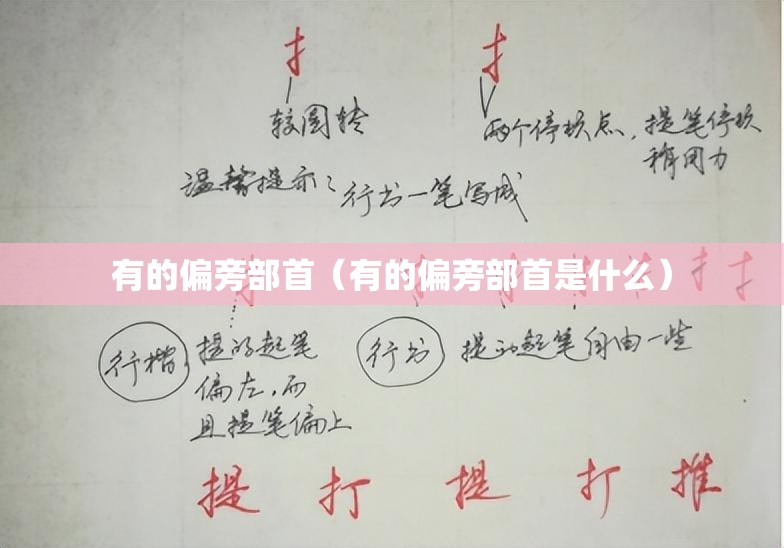 扌 扌
较圆转
两个停顿点，提笔停顿
稍用力
温馨提示：行书一笔写成
有的偏旁部首（有的偏旁部首是什么）
行楷 提的起笔
偏左，而
且提笔偏上
行书 提的起笔自由一些
提 打 提 打 推